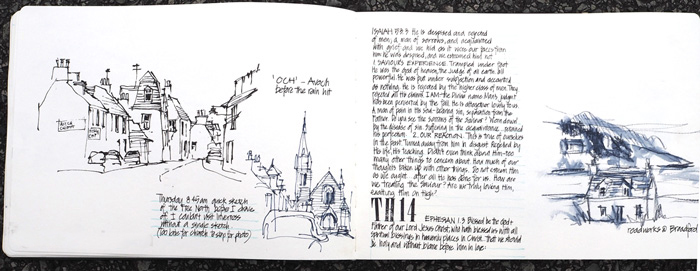 'OCH' - Avoch
before the rain hit
Thursday 8:45am quick sketch
of the True North before I drove
of I couldn't visit Inverness
without a single sketch
ISAIAH 53:3 He is despised and rejected
of men, a man of sorrows, and acquainted
with grief and we hid as it were our faces from
him he was despised, and we esteemed him not
1 SAVIOUR'S EXPERIENCE. Trampled under foot
He was the God of heaven, the Judge of all earth. All
powerful. He was put under subjection and accounted
as nothing. He is rejected by the higher class of men. They
rejected all His claims. I AM - the Divine name. Man's judgment
has been perverted by the fall. He is altogether lovely. To us
a man of pain in His sin-bearing, separation from the
Father. Do you see the sorrows of the Saviour? Worn down
by the disease of sin. Suffering in the acquaintance
2. OUR REACTION. This is true of ourselves
in the past. Turned away from him in disgust. Rejected by
His life, His teaching. Didn't even think about Him - too
many other things to concern about. How much of our
thoughts taken up with other things. Do not esteem Him
as we ought after all He has done for us. How are
we treating the Saviour? Are we truly loving Him,
exalting Him on high?
TH 14
EPHESIAN 1.3 Blessed be the God +
Father of our Lord Jesus Christ, who hath blessed us with all
spiritual blessings in heavenly places in Christ. That we should
be holy and without blame before Him in love.
roadworks @